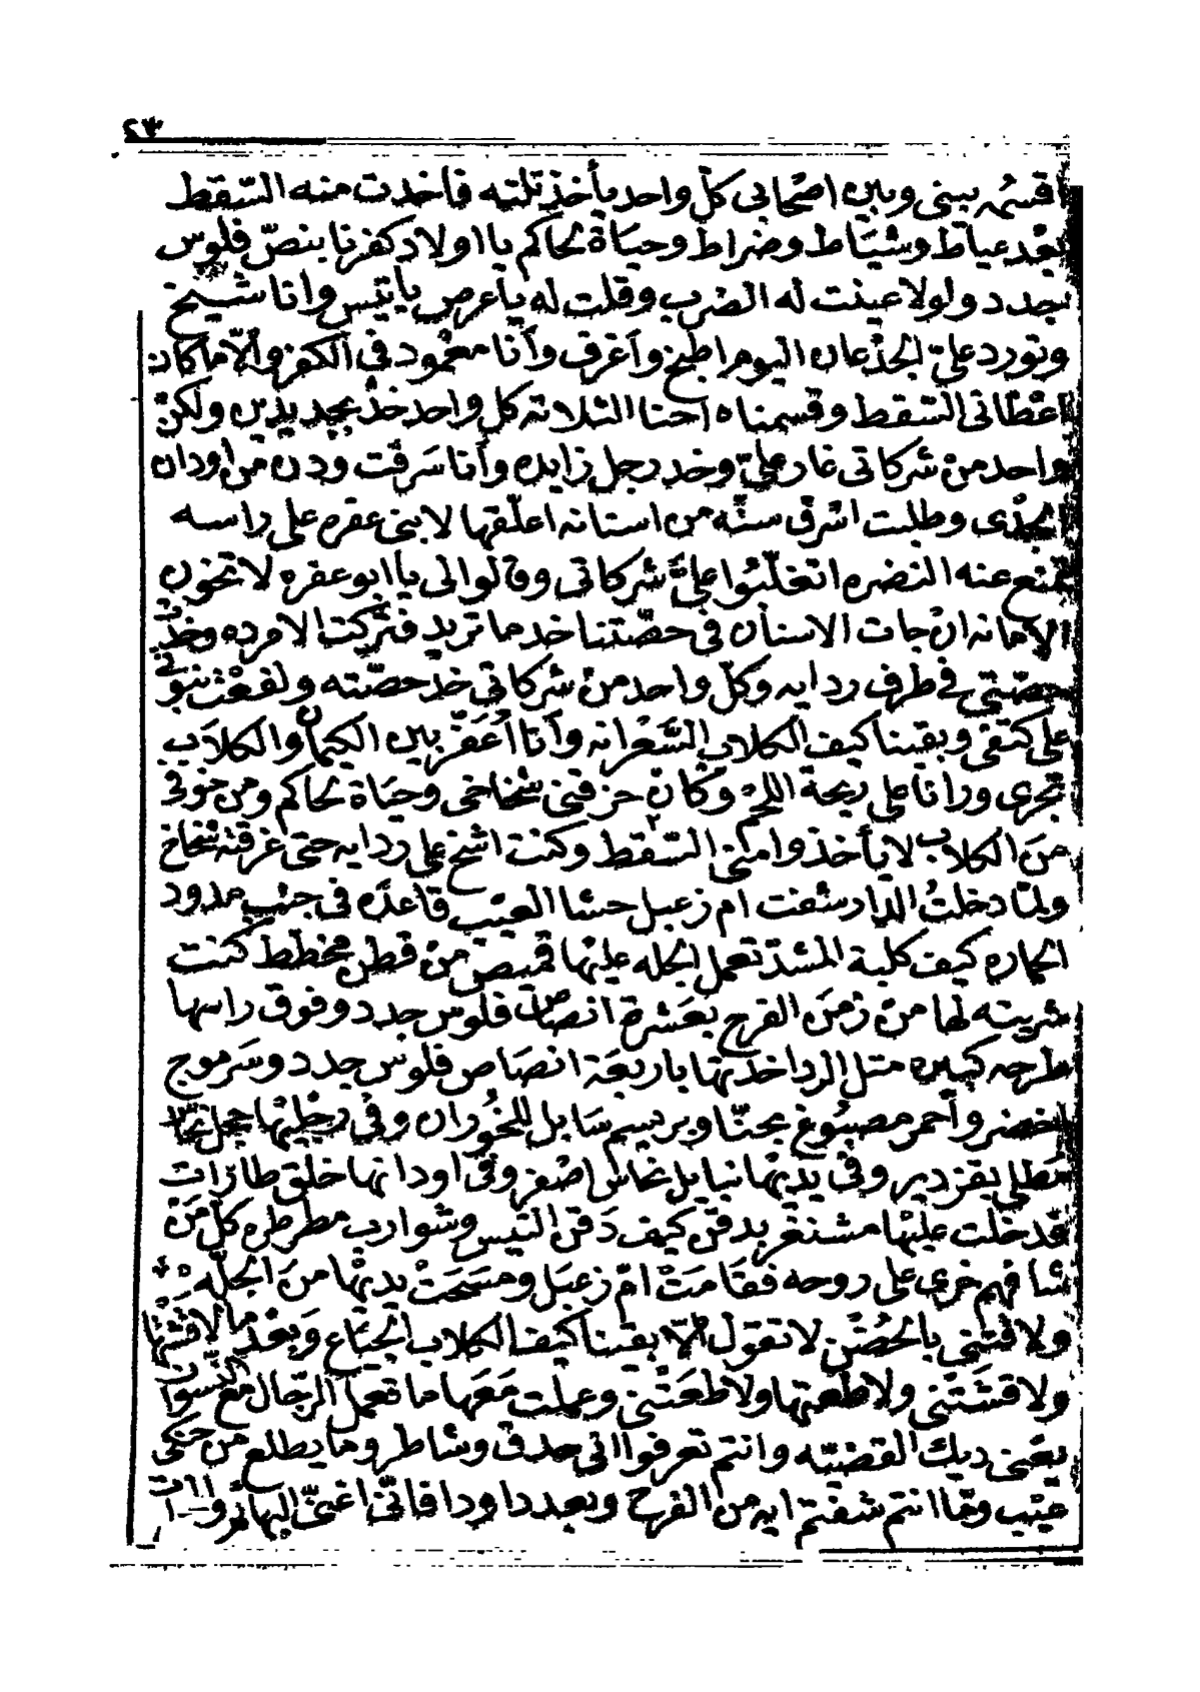 ٢٣
اقسمُه بينى وبين اصْحابى كلّ واحد يأخذ تلته فاخدت منه السّقط
بعْد عياط وشيَاط وضراط وحيَاة لحاكم يا اولاد كفرنا بنصّ فلوس
جدد ولولا عينت له الضرب وقلت له يا عرص يا تيس وانا شيخ
وتورد علىّ الجدْعان اليوم اطبخ واَغرف واَنا معْمود فى الكفر والّا ما كان
اعْطانى السّقط وقسمناه احنا التلاته كل واحد خدْ بجديدين ولكنْ
واحد من شركاتى غار علىّ وخد رجل زايده واَنا سَرقت ودن من اودان
الجدْى وطلبت اسْرق سنّه من اسنانه اعلّقها لابنى عفره على راسه
تمنع عنه النضره اتغلّبُوا علىَّ شركاتى وقالوا لى يا ابو عفره لا تخون
الامانه انْ جات الاسنان فى حصّتنا خد ما تريد فتركت الامر ده وخدْت
حصّتى فى طرف ردايه وكلّ واحد منْ شركاتى خد حصّته ولفعْت نبّوتى
على كتفى وبقينا كيف الكلاب السَّعْرانه واَنا اُعَفّر بين الكيمان والكلاَب
تجرى ورانا على ريحة اللحم وكان حزقتنى شخاخى وحيَاة لحاكم ومن خوفى
منَ الكلاب لا يأخذوا منّى السّقط وكنت اشخ على ردايه حتى غرقته شخاخ
ولمّا دخلتُ الدار شفت ام زعبل حشا العيْب قاعدَه فى جنب مدود
الحماره كيف كلبة المشدّ تعمل الجله عليْها قميص منْ قطن مخطط كنت
شريته لها منْ زمَن الفرح بعَشرة انصاص فلوس جدد وفوق راسها
طرحه كبيره متل الرداخدتها باربعَة انصَاص فلوس جدد وسَرموج
اخضر واَحمر مصبُوغ بحنّا وبريسم سَابل للخُوران وفى رجليْها حجل نحاس
مطلى بقزدير وفى يديْها نبايل نحاس اصْفر وفى اودانها خلق طارات
فدخلت عليْها مشنغر بدقن كيف دَقن التيس وشوارب مطرطره كلّ منْ
شافهم خرى على روحه فقَامَتْ امّ زعبَل ومسَحَتْ يديْها منَ الجلّه
ولاقتنى بالحُضْن لا تقول الّا بقينا كيف الكلاب الجيَاع وَبعْد ما لاقشْتها
ولا قشَتَنى ولا طعتها ولا طعَتْنى وعملت مَعَها ما تعمل الرّجال مع النّسوان
يعْنى ديك القضيّه وانتم تعرفوا انى حدق وشاطر وما يطلع من حنكى
عيْب وما انتم شفتم ايه من الفرح وبعد دا ودا فانّى اغنىّ ليها